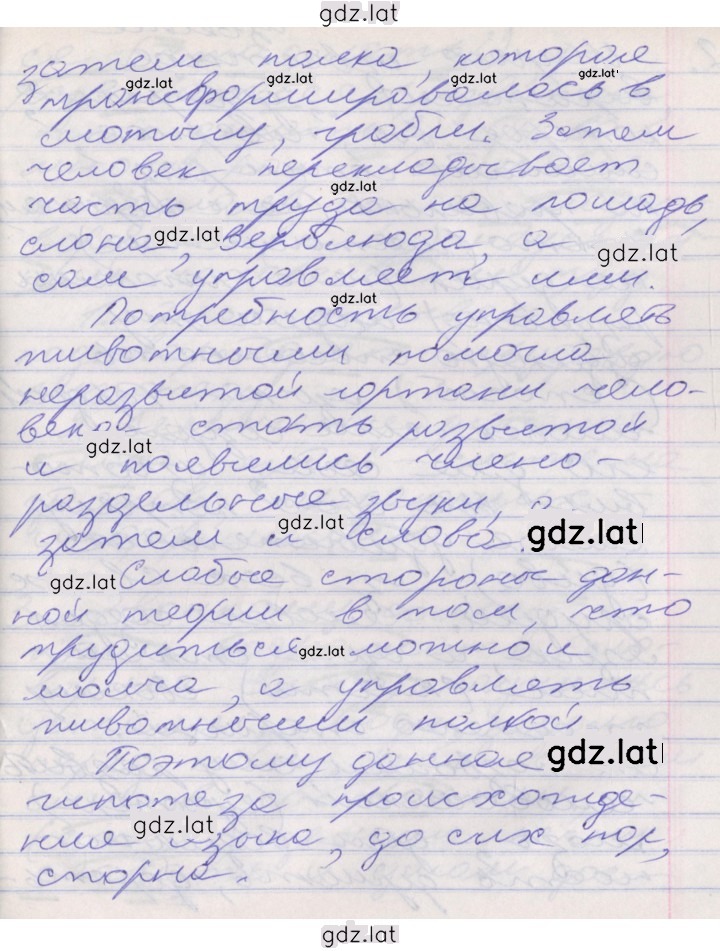 gdz.lat
затем палка, которая
gdz.lat gdz.lat gdz.lat
трансформировалась в
мотыгу, грабли. Затем
человек перекладывает
gdz.lat
часть труда на лошадь,
слона, верблюда, а
gdz.lat gdz.lat
сам управляет ими.
gdz.lat
Потребность управлять
животными помогла
неразвитой гортани чело-
века стать развитой
gdz.lat
и появились члено-
раздельные звуки, а
gdz.lat gdz.lat
затем и слова.
gdz.lat
Слабые стороны дан-
ной теории в том, что
трудиться можно и
gdz.lat
молча, а управлять
животными палкой
Поэтому данная
gdz.lat
гипотеза происхожде-
gdz.lat
ния языка, до сих пор,
спорна.
gdz.lat